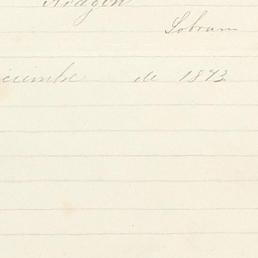 Aragón
Sobran
iciembre de 1873